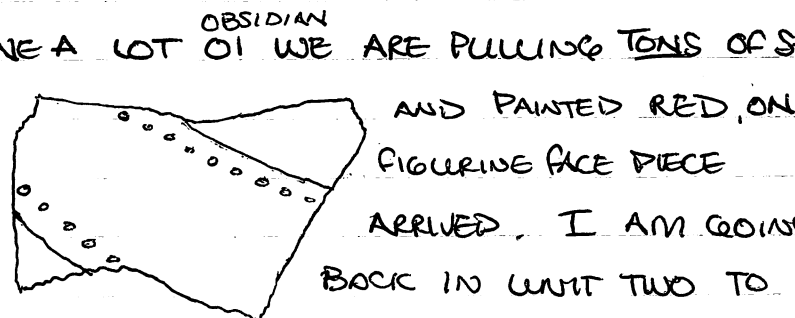 OBSIDIAN
NE A LOT OI WE ARE PULLING TONS OF S
AND PAINTED RED, ON
FIGURINE FACE PIECE
ARRIVED. I AM GOIN
BACK IN UNIT TWO TO